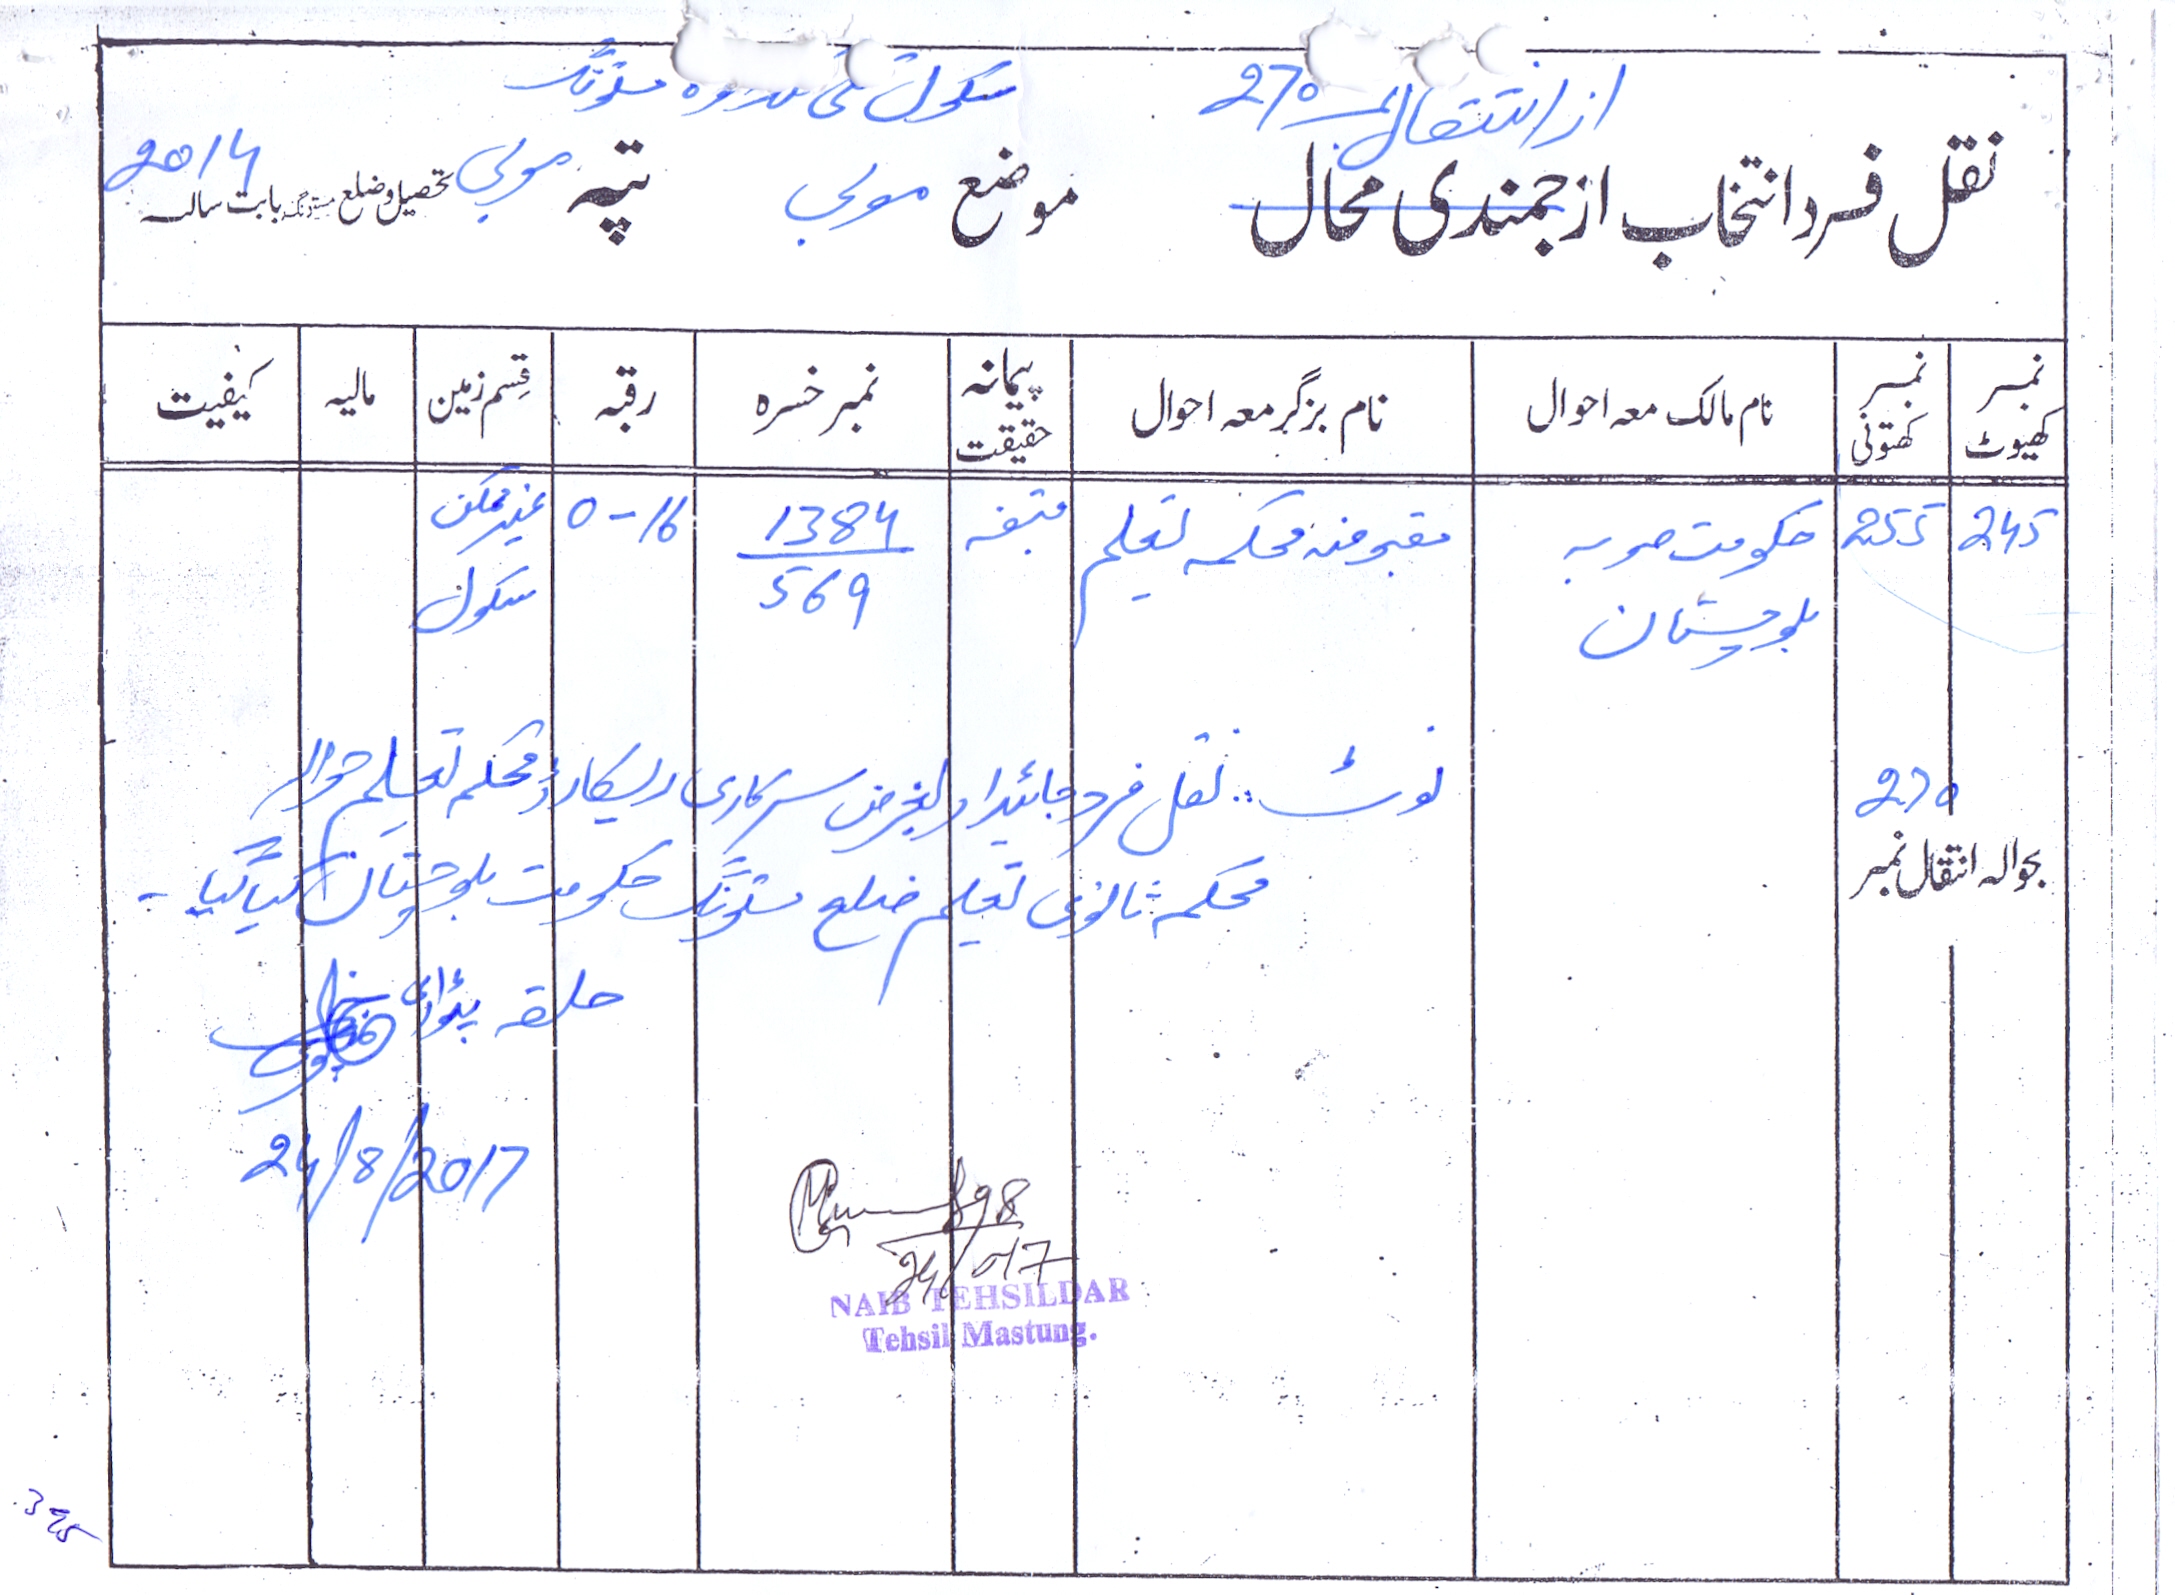 از انتقال نمبر 270 سکول مستونگ
نقل فرد انتخاب از جمندی محال موضع تپہ تحصیل و ضلع مستونگ بابت سالہ 2014
نمبر کھیوٹ نمبر کھتونی نام مالک معہ احوال نام بزگر معہ احوال پیمانہ حقیقت نمبر خسرہ رقبہ قسم زمین مالیہ کیفیت
245 255 حکومت صوبہ مقبوضہ محکمہ تعلیم 1384 0-16 غیر ممکن
بلوچستان 569 سکول
نوٹ:۔ نقل فرد جائیداد بغرض سرکاری ریکارڈ محکمہ تعلیم حوالہ
270
بحوالہ انتقال نمبر
محکمہ ثانوی تعلیم ضلع مستونگ حکومت بلوچستان کیا گیا -
حلقہ پٹواری
24/8/2017
NAIB TEHSILDAR
Tehsil Mastung.